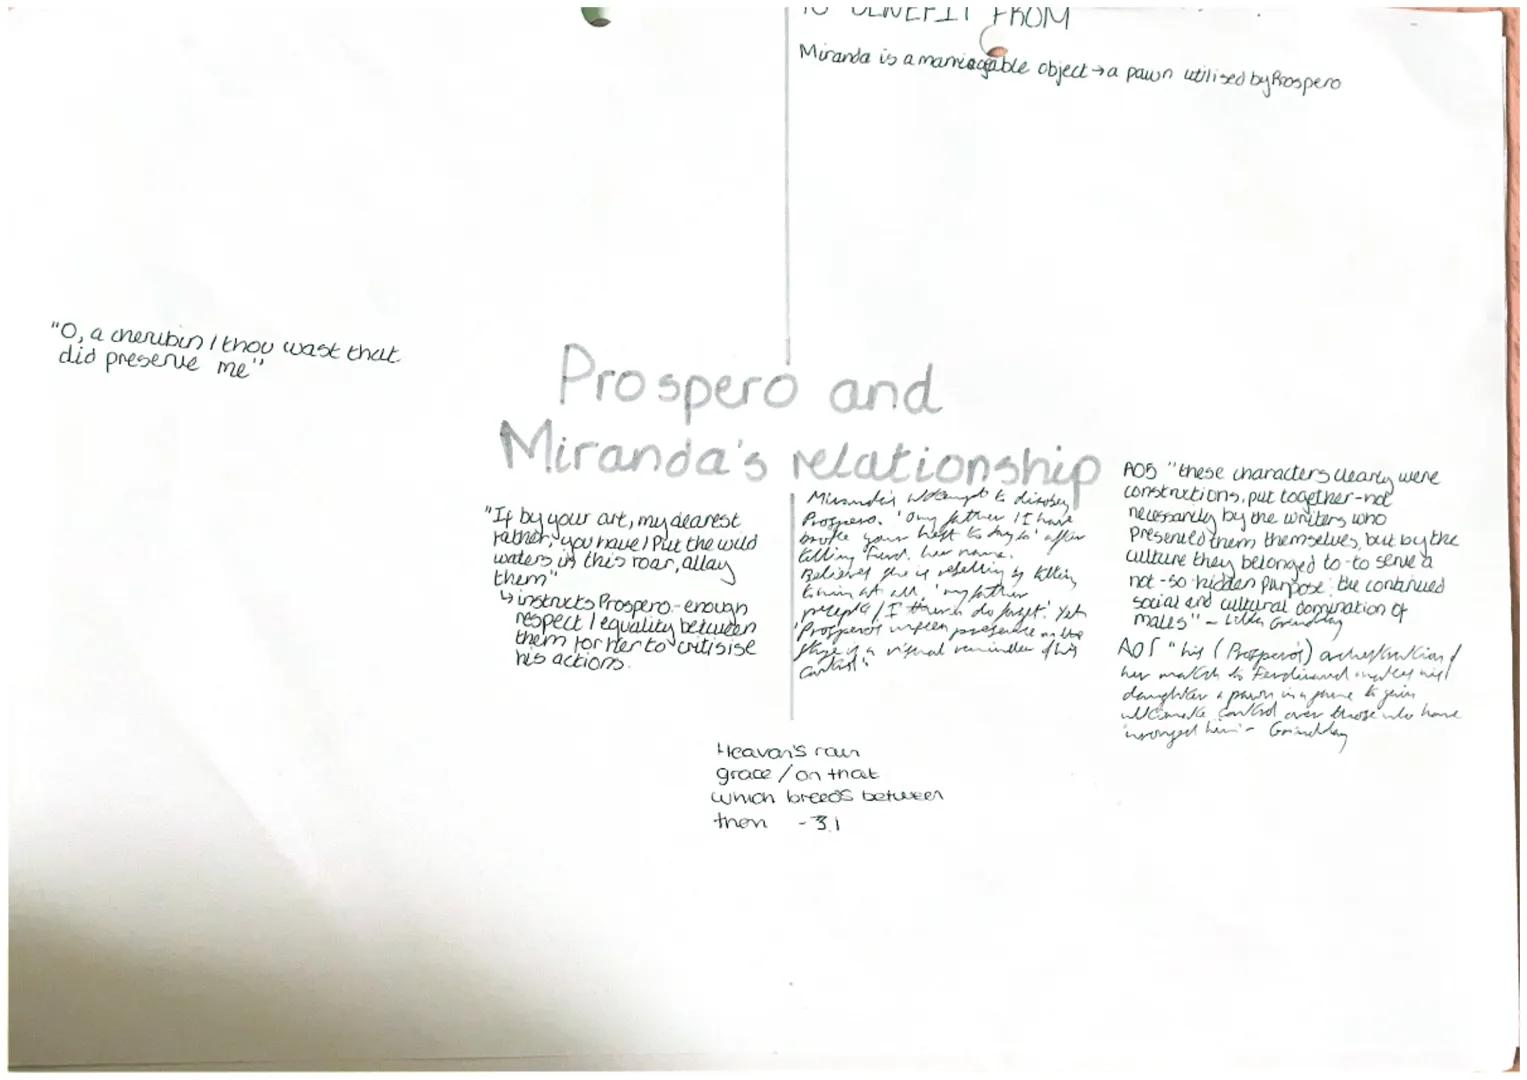 TO BENEFIT FROM
Miranda is a marriageable object → a pawn utilised by Prospero
"O, a cherubin / thou wast that
did preserve me"
Prospero and
Miranda's relationship
"If by your art, my dearest
father, you have / Put the wild
waters in this roar, allay
them"
↳ instructs Prospero - enough
respect / equality between
them for her to critisise
his actions.
Miranda's attempt to disobey
Prospero. 'O my father / I have
broke your hest to say so' after
telling Ferd. her name.
Believes she is rebelling by talking
to him at all, 'my father's
precepts / I therein do forget'. Yet
'Prospero's unseen presence on the
stage is a visual reminder of his
control'.
AO5 "these characters clearly were
constructions, put together - not
necessarily by the writers who
presented them themselves, but by the
culture they belonged to - to serve a
not-so-hidden purpose: the continued
social and cultural domination of
males" - Lilla Grindlay
AO5 "his (Prospero's) orchestration of
her match to Ferdinand makes his
daughter a pawn in a game to gain
ultimate control over those who have
wronged him" - Grindlay
Heavan's rain
grace / on that
which breeds between
them - 3.1